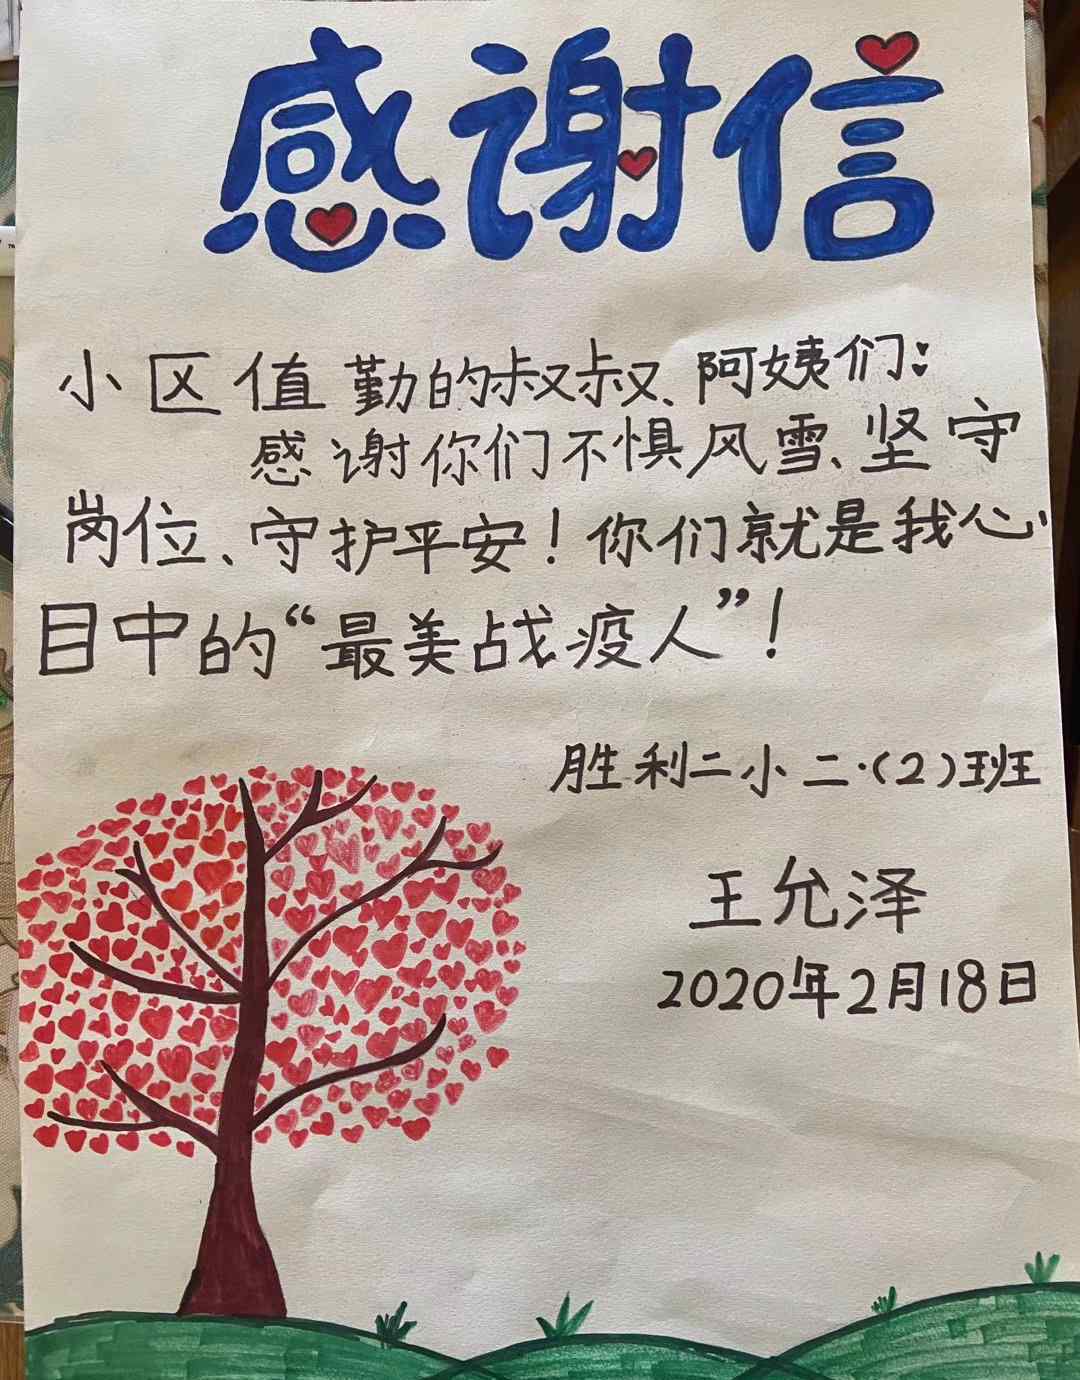 感谢信
小区值勤的叔叔、阿姨们:
感谢你们不惧风雪、坚守
岗位、守护平安！你们就是我心
目中的“最美战疫人”！
胜利二小二·(2)班
王允泽
2020年2月18日